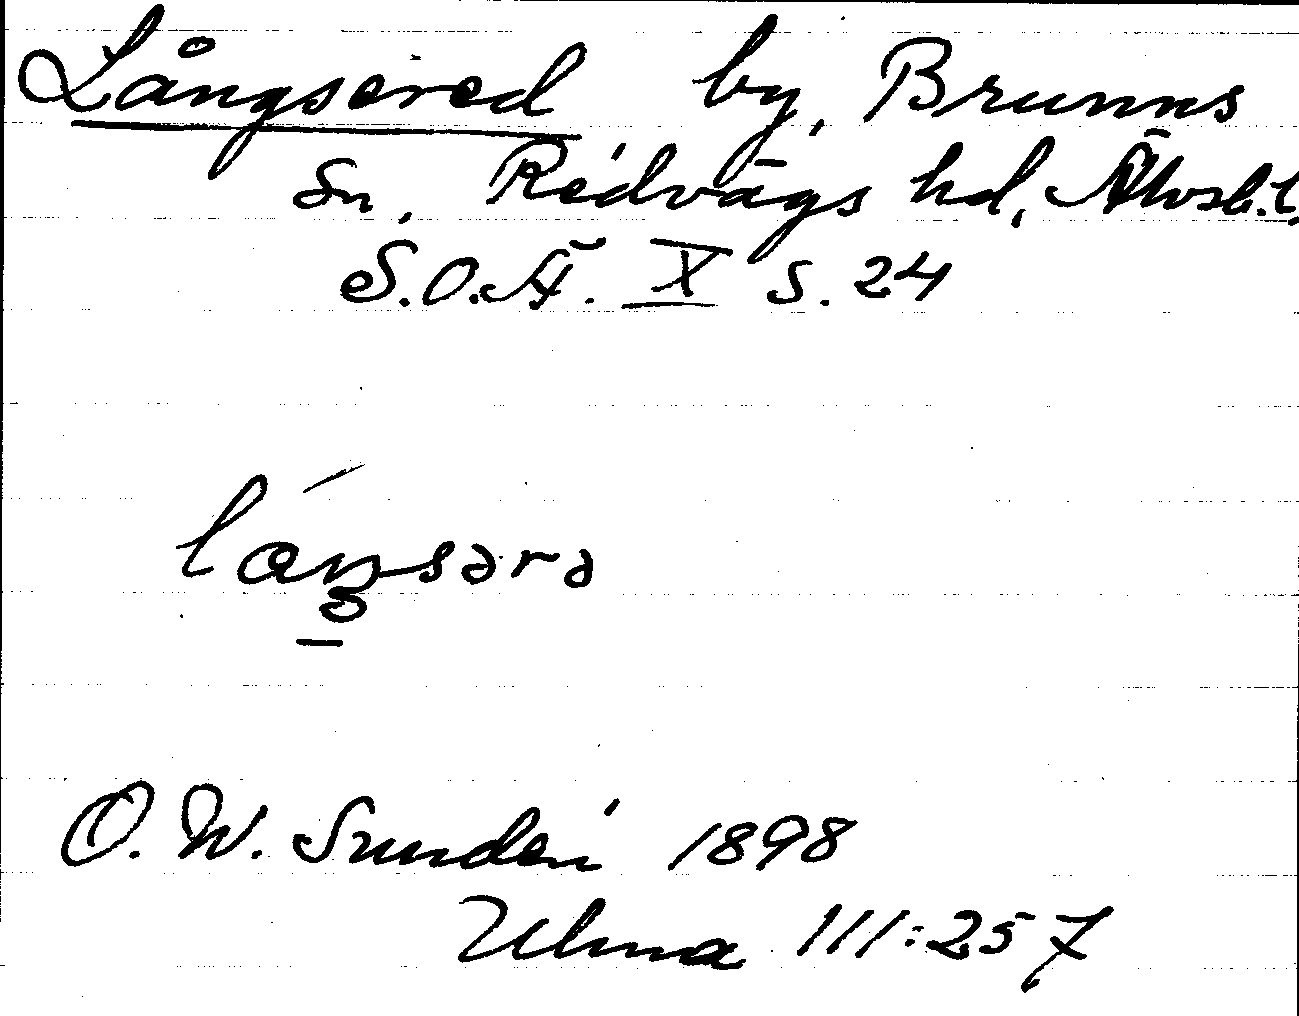 Långsered by, Brunns
sn, Redvägs hd, Älvsb.l.
S.O.Ä. X s. 24
O. W. Sundén 1898
Ulma 111:257